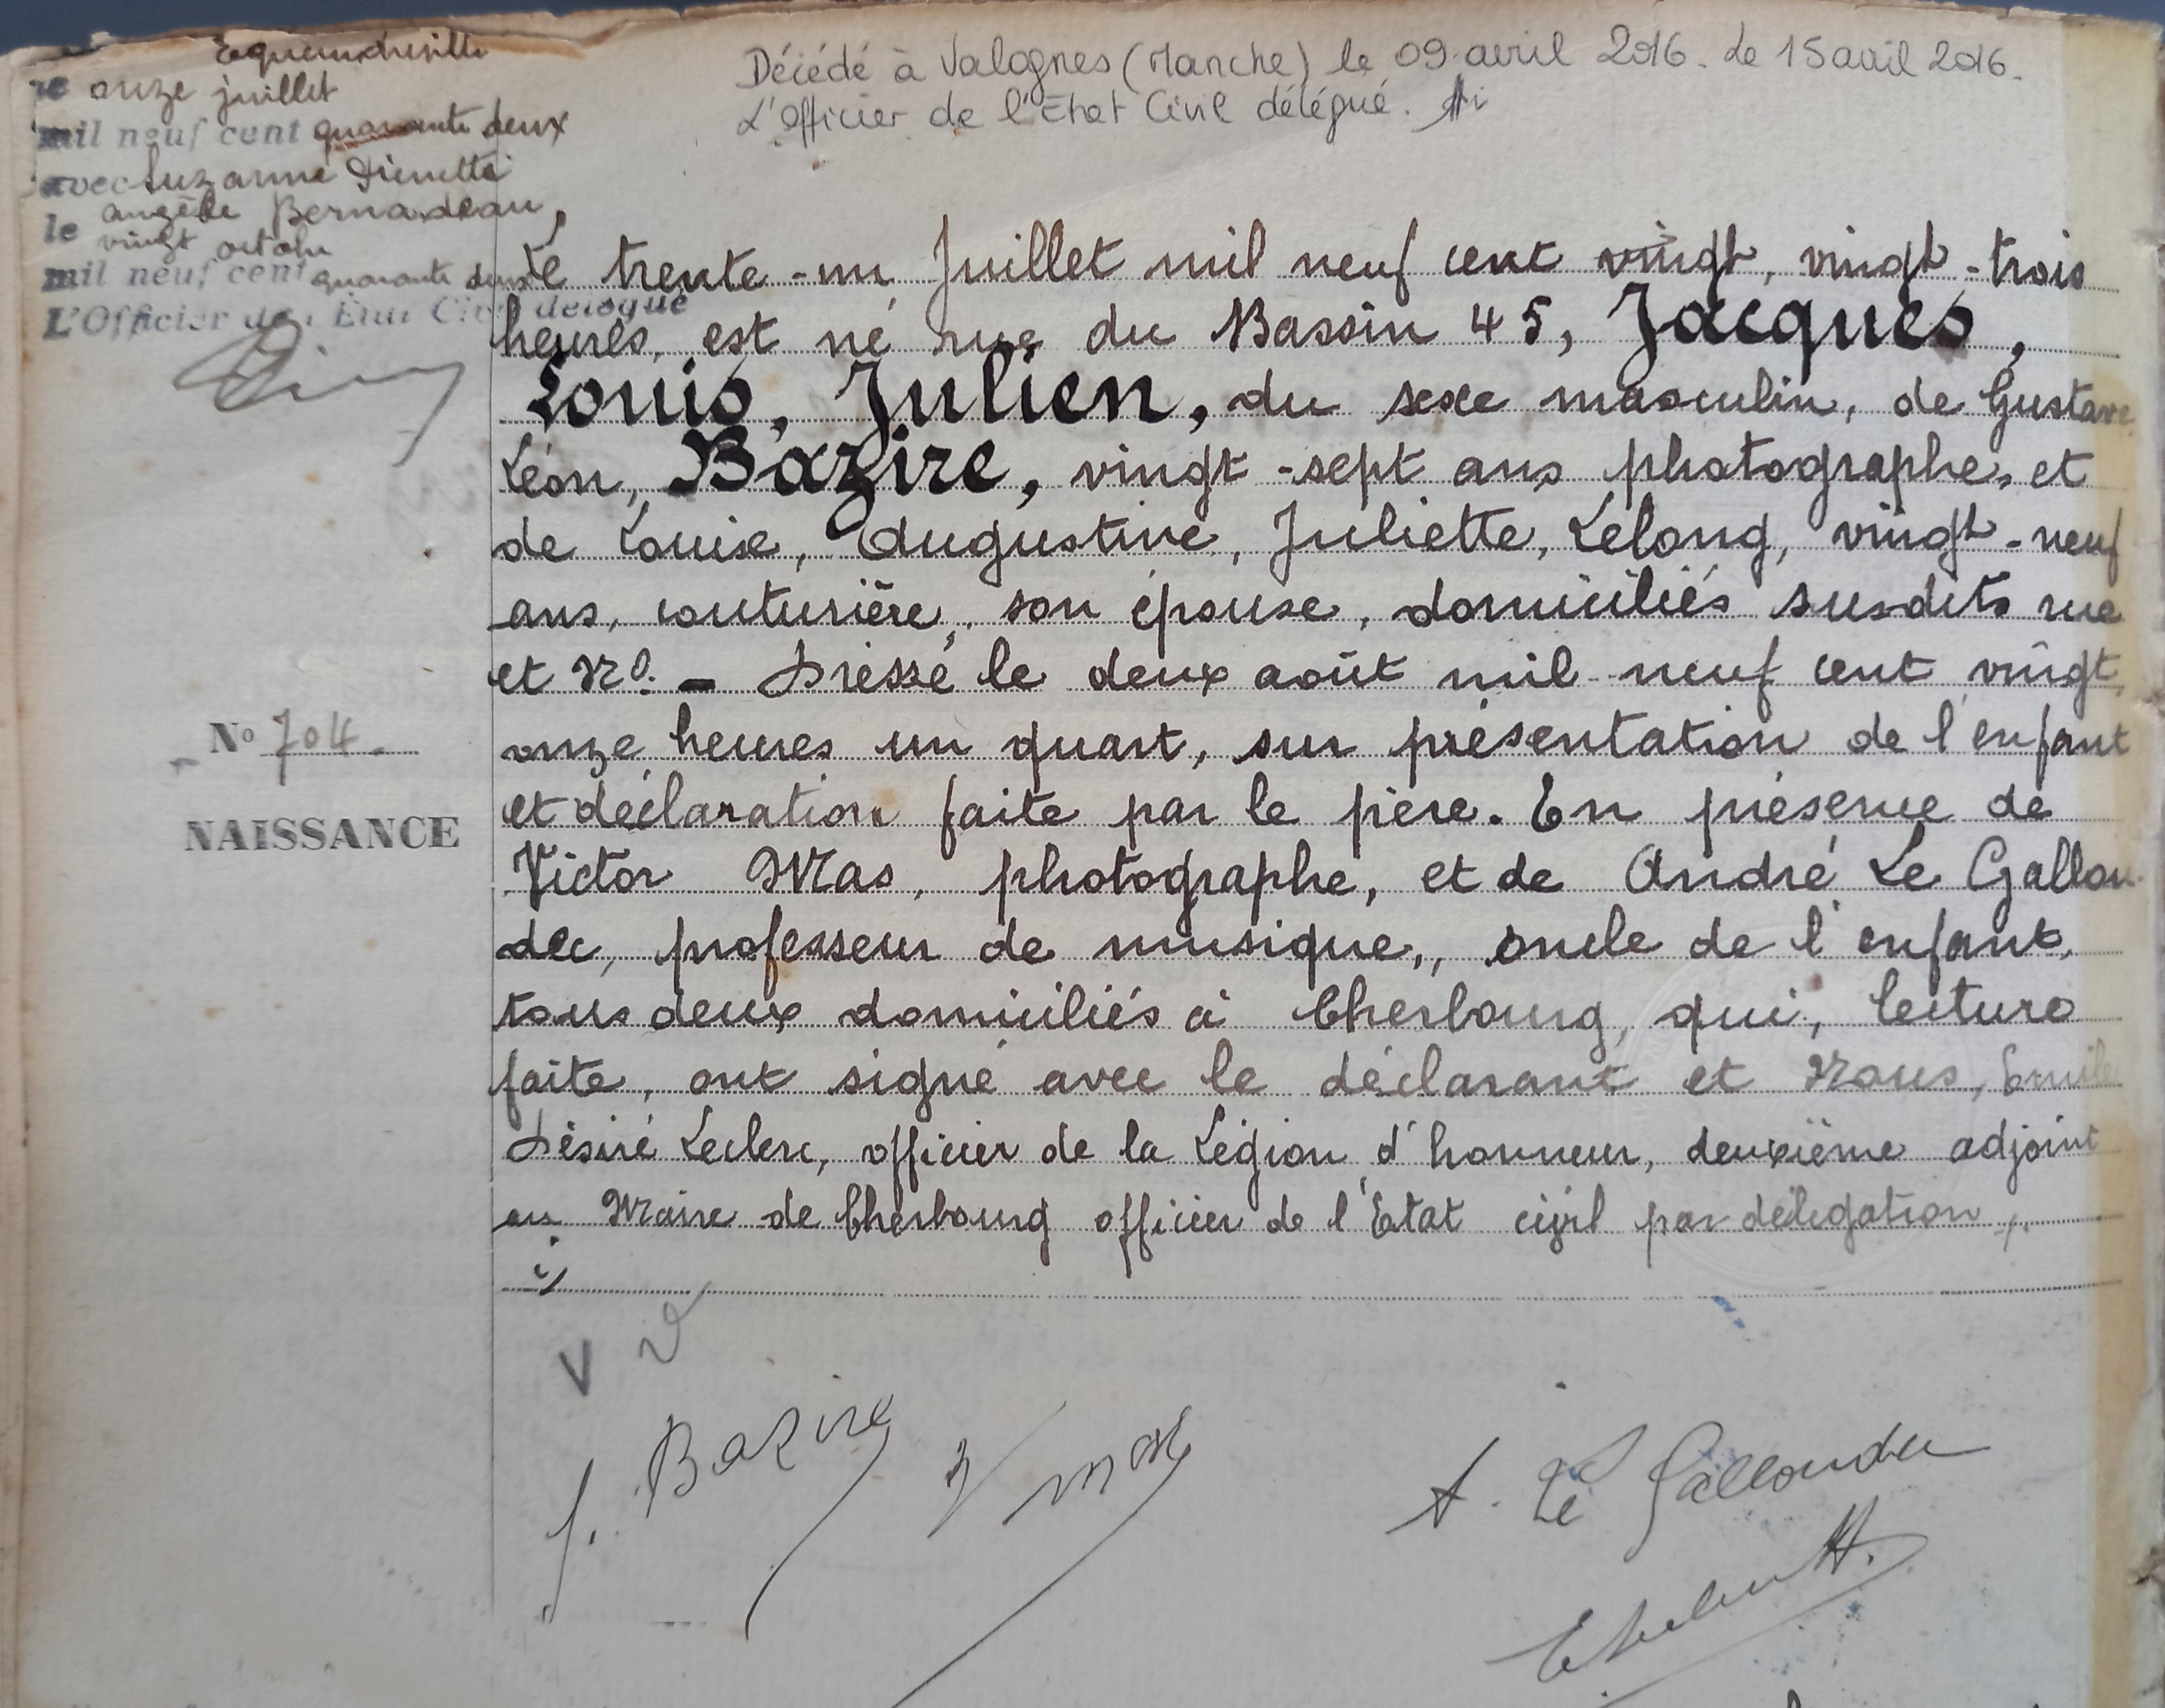 Equeurdreville
le onze juillet
mil neuf cent quarante deux
avec Suzanne
Angèle Bernadeau,
le vingt octobre
mil neuf cent quarante deux
L'Officier de l'Etat Civil délégué
Décédé à Valognes (Manche) le 09 avril 2016. Le 15 avril 2016.
L'Officier de l'Etat Civil délégué.
Le trente-un Juillet mil neuf cent vingt, vingt-trois
heures, est né rue du Bassin 45, Jacques,
Louis, Julien, du sexe masculin, de Gustave
Léon, Bazire, vingt-sept ans photographe, et
de Louise, Augustine, Juliette, Lelong, vingt-neuf
ans, couturière, son épouse, domiciliés susdits rue
et No. - Dressé le deux août mil neuf cent vingt
onze heures un quart, sur présentation de l'enfant
et déclaration faite par le père. En présence de
Victor Mas, photographe, et de André Le Gallou-
dec, professeur de musique,, oncle de l'enfant,
tous deux domiciliés à Cherbourg, qui, lecture
faite, ont signé avec le déclarant et Nous, Emile
Désiré Leclerc, officier de la Légion d'honneur, deuxième adjoint
au Maire de Cherbourg officier de l'Etat civil par délégation
No 704.
NAISSANCE
V
Bazire
V Mas
A. Le Galloudec